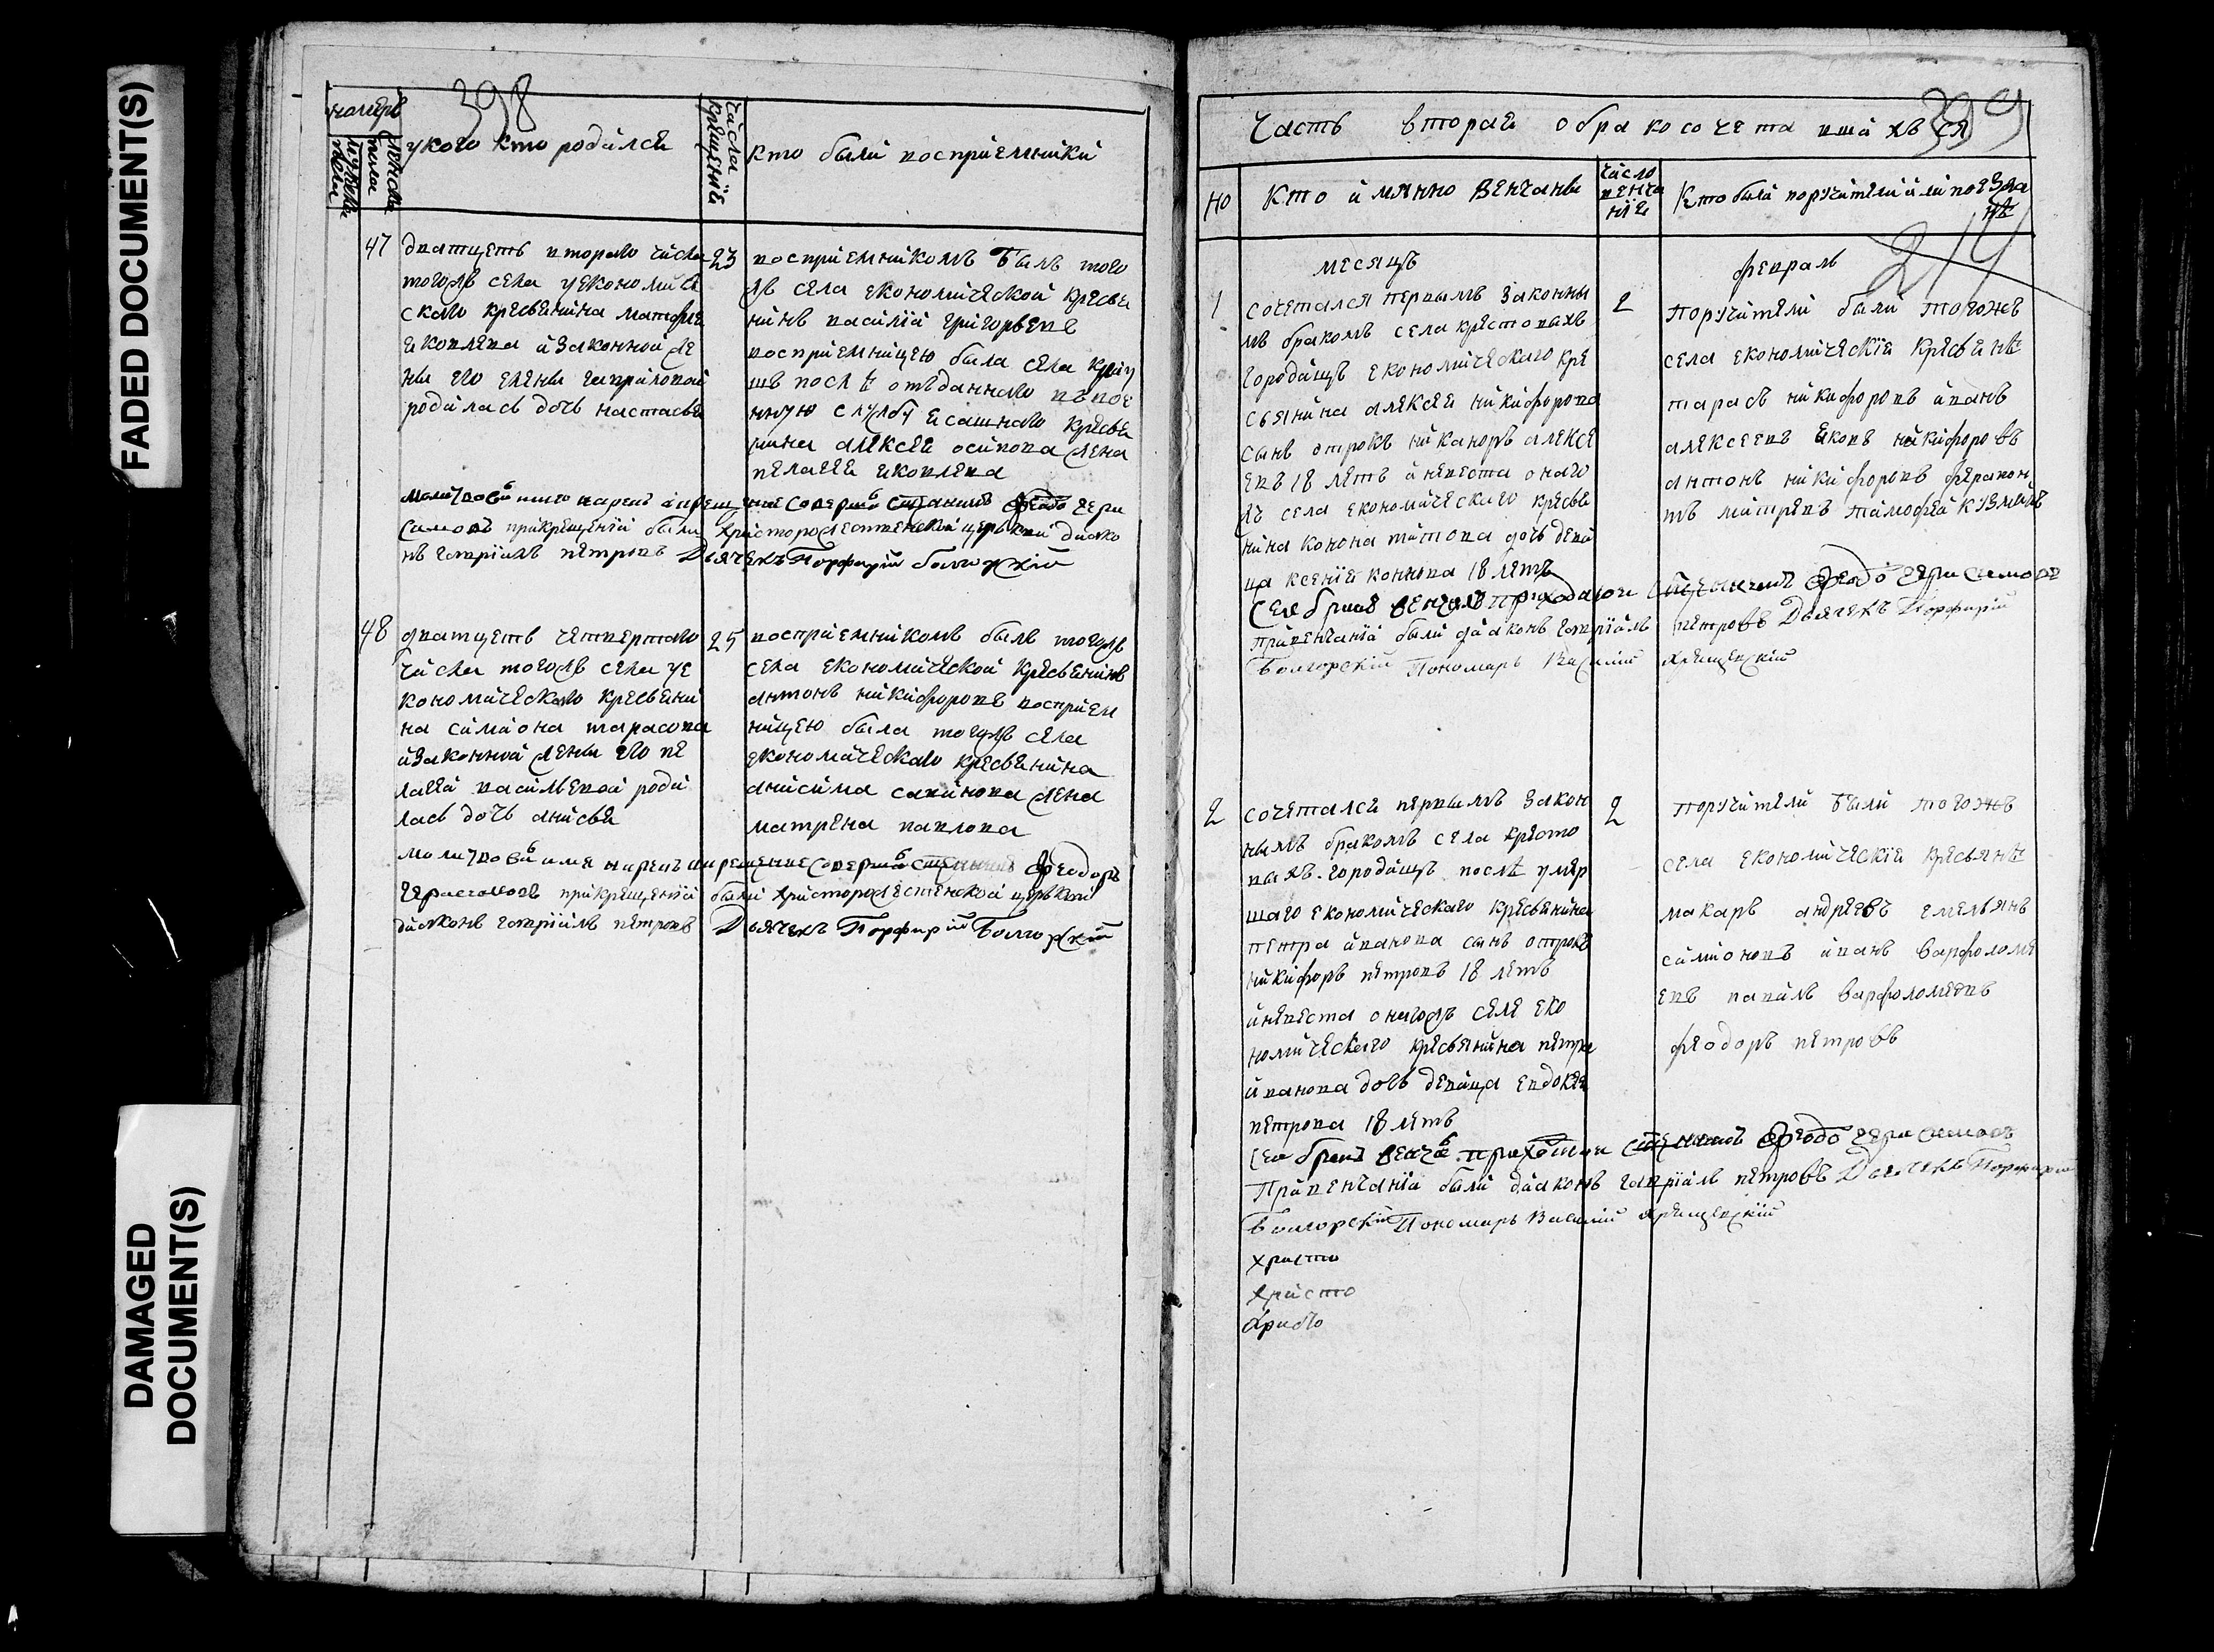 FADED DOCUMENT(S)
DAMAGED
DOCUMENT(S)
398
номеръ
мужеска
пола
женска
у кого кто родился
числа
крещенія
кто были восприемники
47
дватцеть втораго числа
тогожъ села у економиче
скаго кресьянина матфея
яковлева и законной же
ны его елены гавриловой
родилась дочь настасья
23
восприемникомъ былъ того
жъ села економической кресья
нинъ василій григорьевъ
восприемницею была села
послѣ отъданнаго въ вое
нную службу ясашнаго кресья
нина алексея осипова жена
пелагея яковлева
Молитвовалъ имя нарекъ и крещение совершилъ священникъ Феодо Гера
симовъ прикрещеніи были христорожественской церькви диако
нъ гавріилъ петровъ Дьячекъ Порфирій болгорскій
48
дватцеть четвертаго
числа тогожъ села уе
кономическаго кресьяни
на симиона тарасова
изаконной жены его пе
лагеи васильевой роди
лась дочь анисья
25
восприемникомъ былъ тогожъ
села економической кресьянинъ
антонъ никифоровъ восприем
ницею была тогожъ села
економическаго кресьянина
анисима савинова жена
матрена павлова
Молитвовалъ имя нарекъ икрещение совершилъ священникъ Феодоръ
Герасимовъ прикрещеніи были христорожественской церькви
диаконъ гавріилъ петровъ Дьячекъ Порфирій Болгорскій
399
Часть вторая о бракосочетавшихъся
Но
Кто имянно венчаны
число
венча
ніе
Кто были поручители или поезжа
нѣ
214
месяцъ
февраль
1
сочетался первымъ законны
мъ бракомъ села крестовыхъ
городищъ економическаго кре
сьянина алексея никифорова
сынъ отрокъ никаноръ алексе
евъ 18 летъ иневеста онаго
жъ села економическаго кресья
нина конона титова дочь деви
ца ксения конова 18 летъ
2
поручители были тогожъ
села економическія кресьянѣ
тарасъ никифоровъ иванъ
алексеевъ яковъ никифоровъ
антонъ никифоровъ ферапон
тъ митревъ тимофей кузминъ
Сей бракъ венчалъ приходской священникъ Феодо Герасимовъ
привенчаніи были диаконъ гавріилъ петровъ Дьячекъ Порфирій
Болгорскій Пономарь Василій Хрящевскій
2
сочетался первымъ закон
нымъ бракомъ села кресто
выхъ городищъ послѣ умер
шаго економическаго кресьянина
петра иванова сынъ отрокъ
никифоръ петровъ 18 летъ
иневеста онагожъ села еко
номическаго кресьянина петра
иванова дочь девица евдокея
петрова 18 летъ
2
поручители были тогожъ
села економическія кресьянѣ
макаръ андреевъ емельянъ
симионовъ иванъ варфоломе
евъ павилъ варфоломеевъ
феодоръ петровъ
Сей бракъ венчалъ приходской священникъ Феодо Герасимовъ
Привенчаніи были диаконъ гавріилъ петровъ Дьячекъ Порфирій
Болгорскій Пономарь Василій Хрящевскій
христо
христо
христо